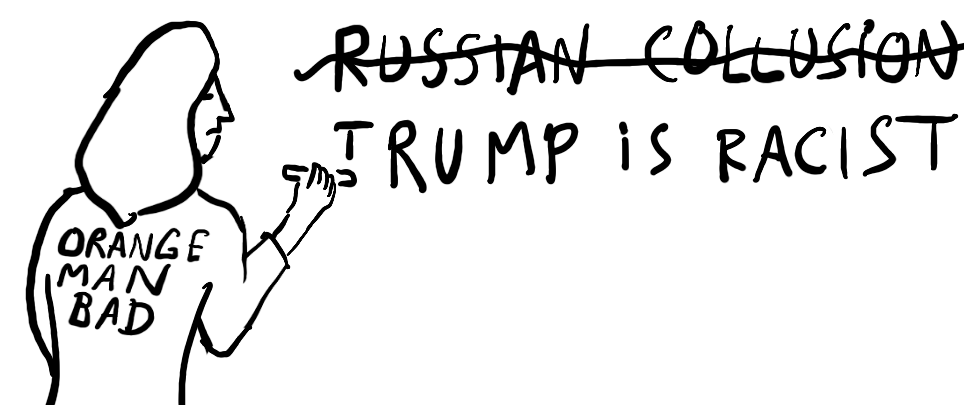 RUSSIAN COLLUSION
TRUMP iS RACIST
ORANGE
MAN
BAD